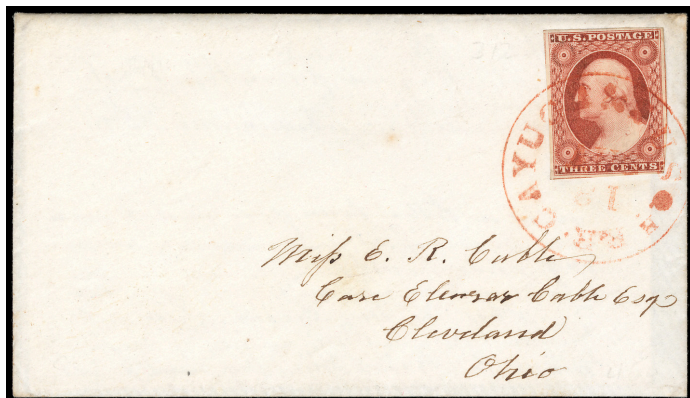 U.S. POSTAGE
THREE CENTS
CAYUG
Miss E. R. Cable
Care Eleazar Cable Esqr
Cleveland
Ohio